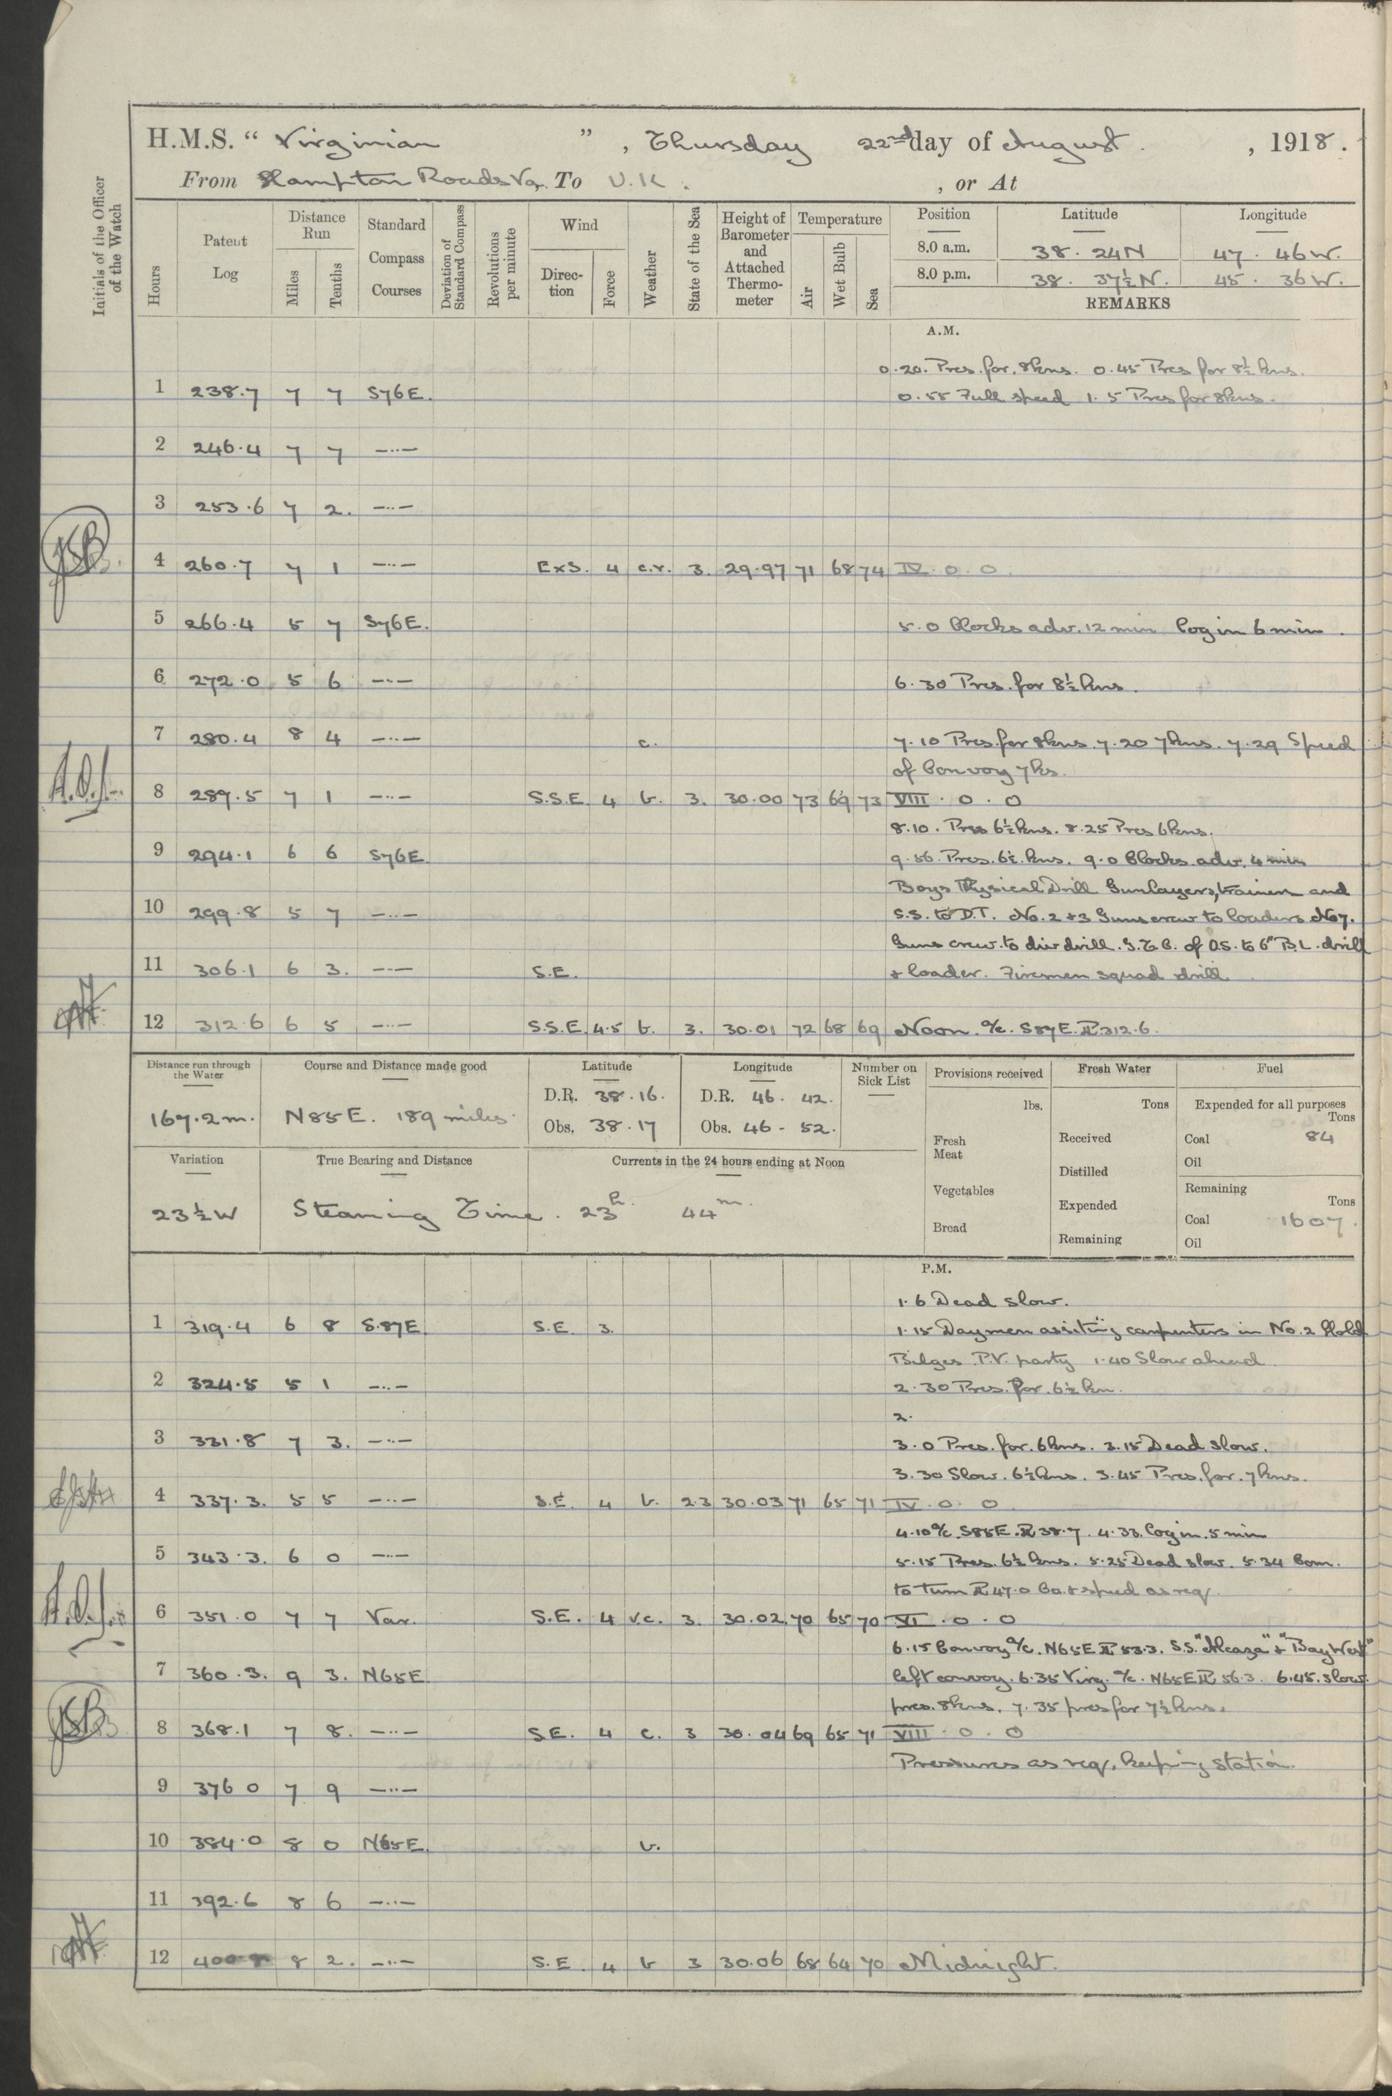 H.M.S. "Virginian", Thursday 22nd day of August, 1918.
From Hampton Roads Va. To U.K. , or At
Initials of the Officer of the Watch
Hours
Patent Log
Distance Run
Miles
Tenths
Standard Compass Courses
Deviation of Standard Compass
Revolutions per minute
Wind
Direction
Force
Weather
State of the Sea
Height of Barometer and Attached Thermometer
Temperature
Air
Wet Bulb
Sea
Position Latitude Longitude
8.0 a.m. 38. 24N 47. 46W.
8.0 p.m. 38. 37½N. 45. 36W.
REMARKS
A.M.
0.20. Pres. for 8kns. 0.45 Pres for 8½ kns.
1 238.7 7 7 S76E. 0.55 Full speed 1.5 Pres for 8kns.
2 246.4 7 7 —··—
3 253.6 7 2. —··—
4 260.7 7 1 —··— ExS. 4 c.r. 3. 29.97 71 68 74 IV. 0. 0.
5 266.4 5 7 S76E. 5.0 Clocks adv. 12 min Log in 6 min.
6 272.0 5 6 —··— 6.30 Pres. for 8½ kns.
7 280.4 8 4 —··— c. 7.10 Pres. for 8kns. 7.20 7kns. 7.29 Speed
of Convoy 7ks.
8 287.5 7 1 —··— S.S.E. 4 b. 3. 30.00 73 69 73 VIII. 0. 0
8.10. Pres 6½ kns. 8.25 Pres 6kns.
9 294.1 6 6 S76E 9.56. Pres. 6½ kns. 9.0 Clocks adv. 4 min
Boys Physical Drill Gunlayers, trainers and
10 299.8 5 7 —··— S.S. to D.T. No. 2 & 3 Guns crew to loader. No 7.
Guns crew to div drill. S.T.C. of O.S. to 6" B.L. drill
11 306.1 6 3. —··— S.E. & loader. Firemen squad drill
12 312.6 6 5 —··— S.S.E. 4.5 b. 3. 30.01 72 68 69 Noon. a/c. S87E. PL 312.6.
Distance run through the Water 167.2m.
Course and Distance made good N85E. 189 miles.
Latitude
D.R. 38.16.
Obs. 38.17
Longitude
D.R. 46. 42.
Obs. 46 - 52.
Number on Sick List
Provisions received
lbs.
Fresh Meat
Vegetables
Bread
Fresh Water
Tons
Received
Distilled
Expended
Remaining
Fuel
Expended for all purposes
Tons
Coal 84
Oil
Remaining
Tons
Coal 1607.
Oil
Variation 23½W
True Bearing and Distance
Currents in the 24 hours ending at Noon
Steaming Time. 23h. 44m.
P.M.
1.6 Dead Slow.
1 319.4 6 8 S.87E. S.E. 3. 1.15 Daymen assisting carpenters in No. 2 Hold
Bilges. P.V. party 1.40 Slow ahead
2 324.5 5 1 —··— 2.30 Pres. for 6½ kn.
2.
3 331.8 7 3. —··— 3.0 Pres. for 6kns. 3.15 Dead slow.
3.30 Slow. 6½ kns. 3.45 Pres. for 7kns.
4 337.3. 5 5 —··— S.E. 4 b. 2.3 30.03 71 65 71 IV. 0. 0
4.10 a/c S85E. PL 38.7. 4.33. Log in. 5 min
5 343.3. 6 0 —··— 5.15 Pres. 6½ kns. 5.25 Dead slow. 5.34 Com.
to turn PL 47.0 Co. & speed as req.
6 351.0 7 7 Var. S.E. 4 v.c. 3. 30.02 70 65 70 VI. 0. 0
6.15 Convoy a/c. N65E PL 53.3. S.S. "Alcaza" & "Bay West"
7 360.3. 9 3. N65E left convoy. 6.35 Virg. a/c. N65E PL 56.3. 6.45. slow.
pres. 8kns. 7.35 pres for 7½ kns.
8 368.1 7 8. —··— S.E. 4 c. 3 30.04 69 65 71 VIII. 0. 0
Pressures as req. keeping station.
9 376 0 7 9 —··—
10 384.0 8 0 N65E. b.
11 392.6 8 6 —··—
12 400 8 8 2. —··— S.E. 4 b 3 30.06 68 64 70 Midnight.